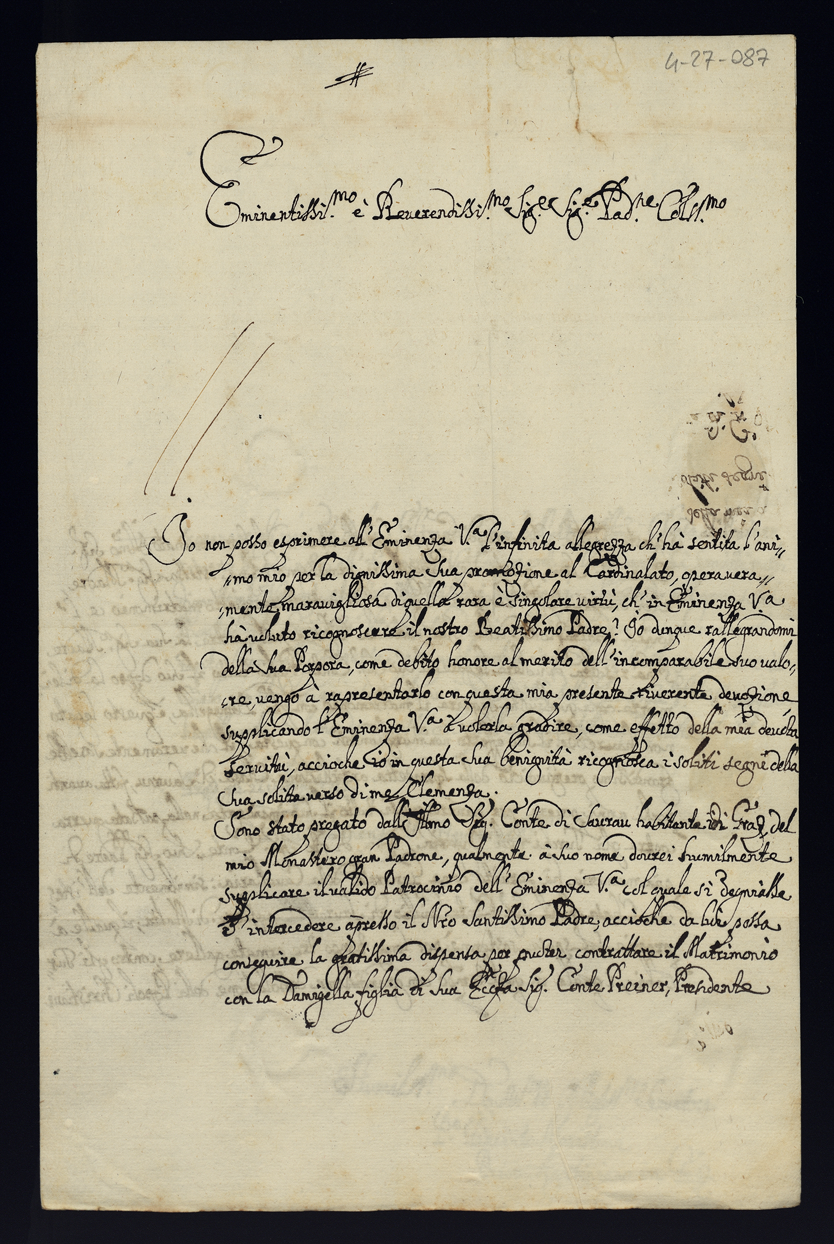 4-27-087
Eminentissi.mo è Reverendissi.mo Sig.e Sig.e Pad.ne Col.mo
Io non posso esprimere all' Eminenza V.a l'infinita allegrezza ch' hà sentita l'ani,,
,,mo mio per la dignissima Sua promozione al Cardinalato, opera vera,,
,,mente maravigliosa di quella rara è singolare virtù, ch' in Eminenza V.a
hà voluto ricognoscere il nostro Beatissimo Padre; Io dunque rallegrandomi
della Sua Porpora, come debito honore al merito dell' incomparabile suo valo,,
,,re, vengo à rapresentarlo con questa mia presente riverente devozione
supplicando l' Eminenza V.a à volerla gradire, come effetto della mia devota
servitù, accioche io in questa Sua benignità ricognosca i soliti segni della
Sua solita verso di me Clemenza.
Sono stato pregato dall' Illmo Sig. Conte di Saurau habitante di Graz, del
mio Monastero gran Padrone, qualmente à suo nome dovrei humilmente
supplicare il valido Patrocinio dell' Eminenza V.a col quale si degniasse
d' intercedere apresso il Nro Santissimo Padre, accioche da lui possa
conseguire la gratissima dispensa per puoter contrattare il Matrimonio
con la Damigella figlia di Sua Ecc.za Sig. Conte Preiner, Presidente